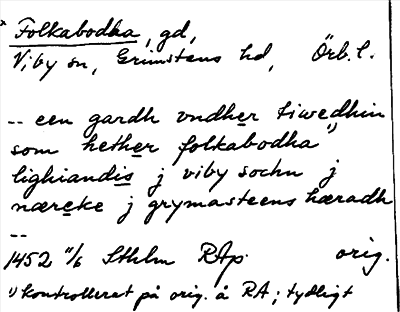 Folkabodha, gd,
Viby sn, Grimstens hd, Örb. l.
-- een gardh vndher tiwedhin
som hether folkabodha 1)
lighiandis j viby sochn j
næreke j grymasteens hæradh
--
1452 11/6 Sthlm RAp orig.
1) kontrollerat på orig. å RA; tydligt